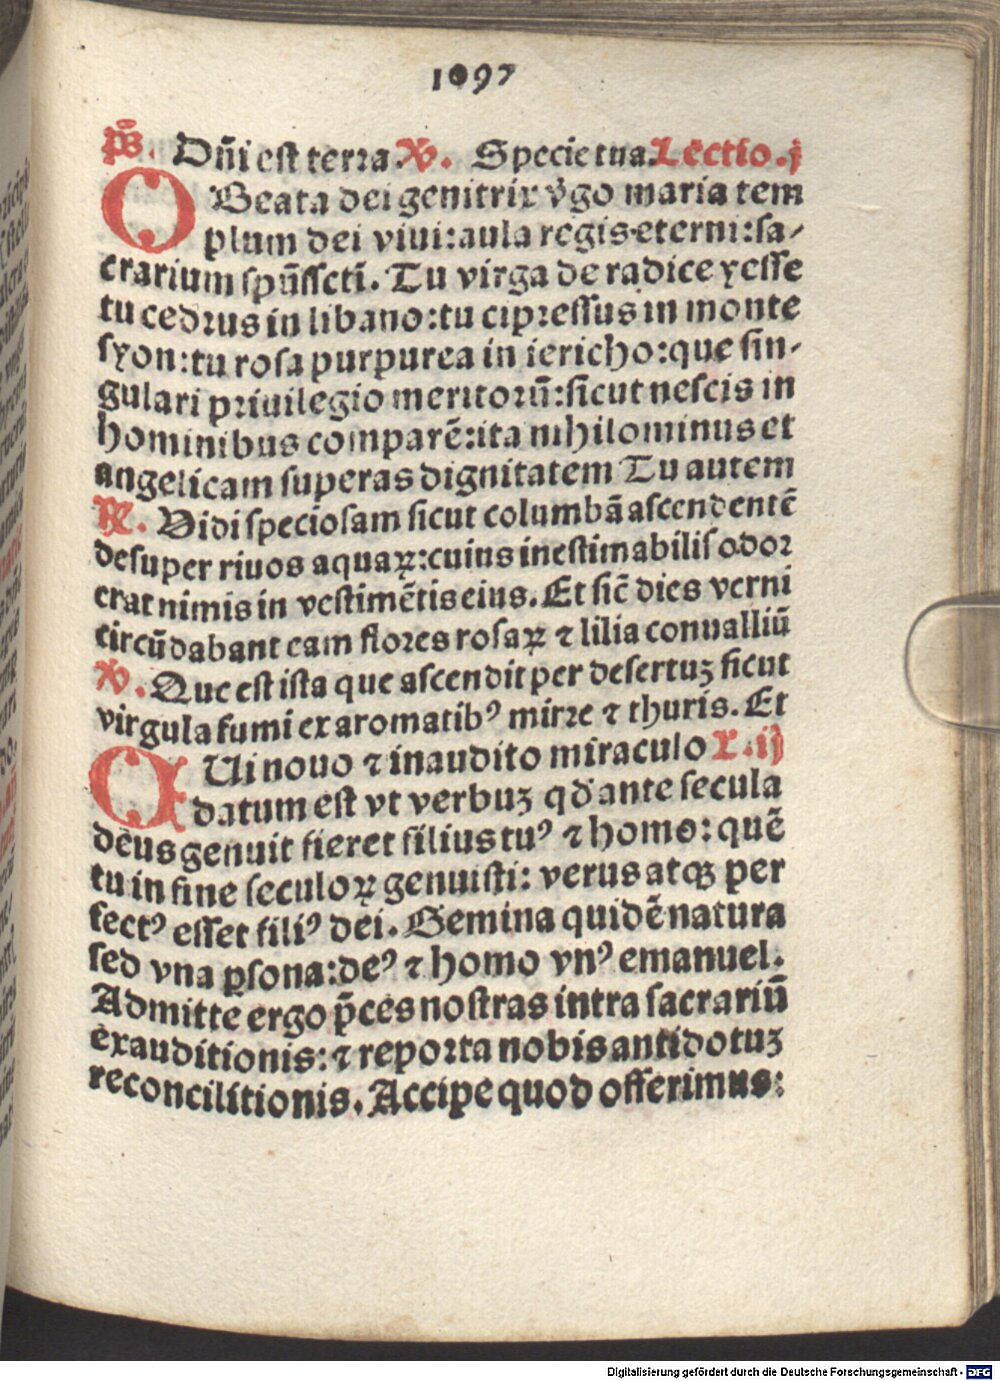 1097
p̄s. Dñi est terra. ℣. Specie tua. Lectio .j
O Beata dei genitrix v̾go maria tem
plum dei viui: aula regis eterni: sa/
crarium spūssctī. Tu virga de radice yesse
tu cedrus in libano: tu cipressus in monte
syon: tu rosa purpurea in iericho: que sin/
gulari priuilegio meritorū: sicut nescis in
hominibus comparē: ita nihilominus et
angelicam superas dignitatem Tu autem
℟. Vidi speciosam sicut columbā ascendentē
desuper riuos aquaꝝ: cuius inestimabilis odor
erat nimis in vestimētis eius. Et sic̄ dies verni
circūdabant eam flores rosaꝝ ⁊ lilia conualliū
℣. Que est ista que ascendit per desertuꝫ sicut
virgula fumi ex aromatibꝰ mirre ⁊ thuris. Et
QUi nouo ⁊ inaudito miraculo L. ij
datum est vt verbuꝫ qd̾ ante secula
deus genuit fieret filius tuꝰ ⁊ homo: quē
tu in fine seculoꝝ genuisti: verus atqꝫ per
fectꝰ esset filiꝰ dei. Gemina quidē natura
sed vna ꝑsona: deꝰ ⁊ homo vnꝰ emanuel.
Admitte ergo p̄ces nostras intra sacrariū
exauditionis: ⁊ reporta nobis antidotuꝫ
reconcilitionis. Accipe quod offerimus:
Digitalisierung gefördert durch die Deutsche Forschungsgemeinschaft - DFG